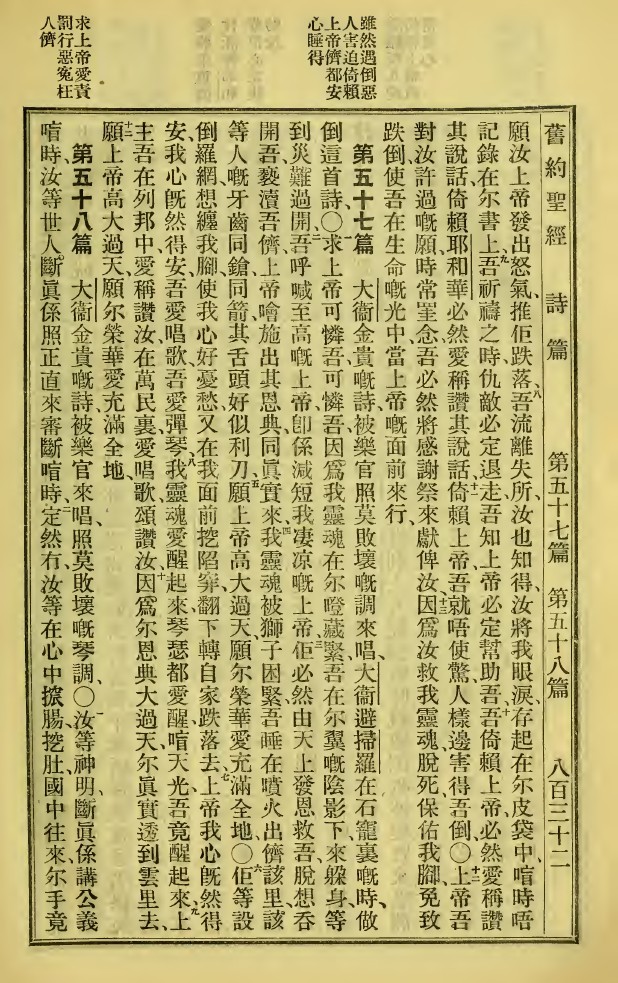 舊約聖經 詩篇 第五十七篇 第五十八篇 八百三十二
雖然遇倒惡
人害迫倚賴
上帝儕都安
心睡得
求上帝愛責
罰行惡寃枉
人儕
願汝上帝發出怒氣、推佢跌落、八吾流離失所、汝也知得、汝將我眼淚、存起在尔皮袋中、喧時唔
記錄在尔書上、九吾祈禱之時仇敵必定退走、吾知上帝必定幫助吾、十吾倚賴上帝必然愛稱讚
其說話、倚賴耶和華必然愛稱讚其說話、十一倚賴上帝、吾就唔使驚、人樣邊害得吾倒、〇十二上帝吾
對汝許過嘅願、時常罣念、吾必然將感謝祭來獻俾汝、十三因爲汝救我靈魂脫死、保佑我脚、免致
跌倒、使吾在生命嘅光中、當上帝嘅面前來行、
第五十七篇 大衞金貴嘅詩、被樂官照莫敗壞嘅調來唱、大衞避掃羅在石窿裏嘅時、做
倒這首詩、〇求上帝可憐吾、可憐吾、因爲我靈魂在尔噔藏緊、吾在尔翼嘅陰影下、來躱身、等
到災難過開、二吾呼喊至高嘅上帝、卽係減短我凄凉嘅上帝、三佢必然由天上發恩救吾、脫想呑
開吾褻瀆吾儕、上帝噲施出其恩典同眞實來、四我靈魂被獅子困緊、吾睡在噴火出儕該里、該
等人嘅牙齒同鎗同箭、其舌頭好似利刀、五願上帝高大過天、願尔榮華愛充滿全地、〇六佢等設
倒羅網想纏我脚、使我心好憂愁、又在我面前挖陷穽、翻下轉自家跌落去、七上帝我心旣然得
安、我心旣然得安、吾愛唱歌、吾愛彈琴、八我靈魂愛醒起來、琴瑟都愛醒、喧天光吾竟醒起來、九上
主吾在列邦中、愛稱讚汝、在萬民裏愛唱歌頌讚汝、十因爲尔恩典大過天、尔眞實透到雲里去、
十一願上帝高大過天、願尔榮華愛充滿全地、
第五十八篇 大衞金貴嘅詩、被樂官來唱、照莫敗壞嘅琴調、〇一汝等神明斷眞係講公義
喧時、汝等世人斷眞係照正直來審斷喧時、二定然冇、汝等在心中挨腸挖肚、國中往來尔手竟